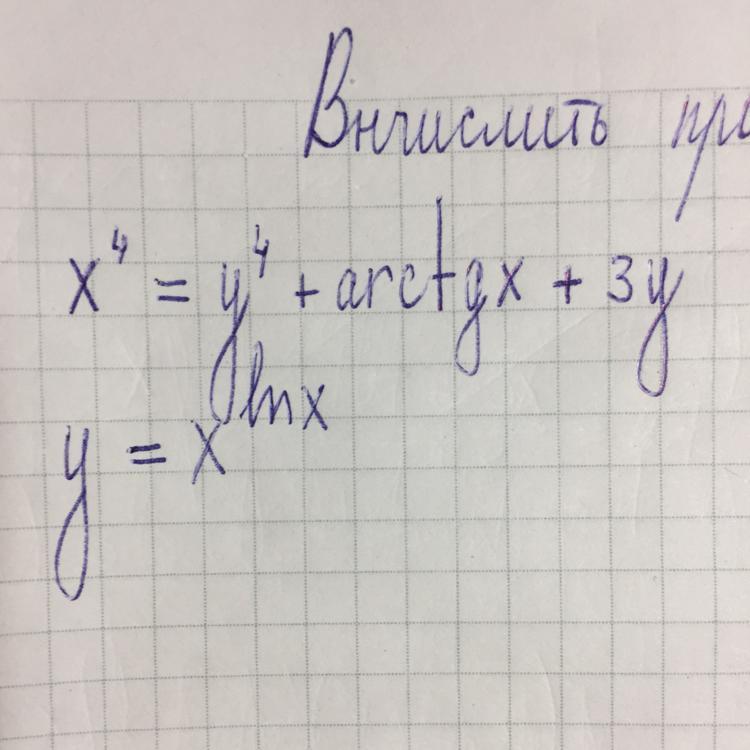 Вычислить
x⁴ = y⁴ + arctgx + 3y
y = x^lnx